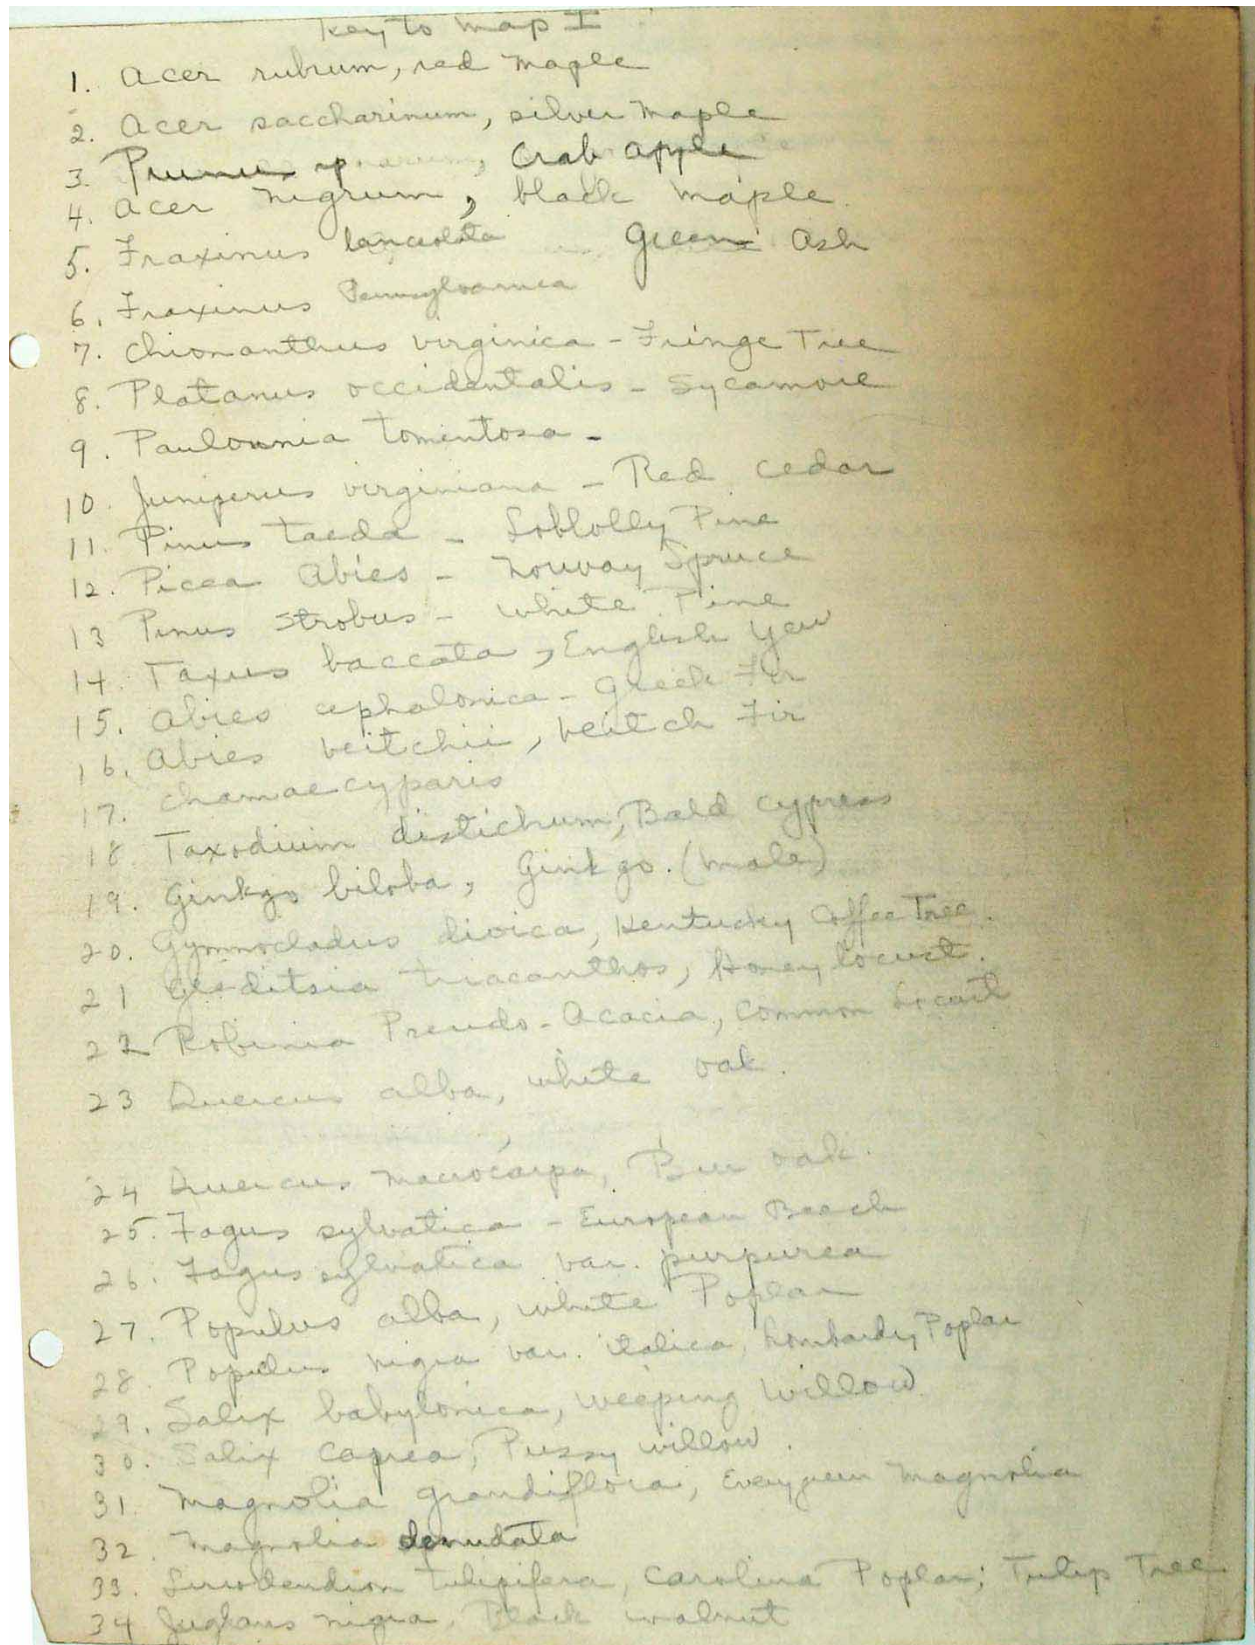 Key to Map I
1. Acer rubrum, red Maple
2. Acer saccharinum, silver Maple
3. Prunus sp , Crab apple
4. Acer nigrum, black maple.
5. Fraxinus lanceolata Green Ash
6. Fraxinus Pennsylvanica
7. Chionanthus virginica - Fringe Tree
8. Platanus occidentalis - Sycamore
9. Paulownia tomentosa -
10. Juniperus virginiana - Red cedar
11. Pinus taeda - Loblolly Pine
12. Picea Abies - Norway Spruce
13 Pinus Strobus - white Pine
14. Taxus baccata, English Yew
15. Abies cephalonica - Greek Fir
16. Abies veitchii, veitch Fir
17. Chamaecyparis
18 Taxodium distichum, Bald cypress
19. Ginkgo biloba, Ginkgo. (male)
20. Gymnocladus divica, Kentucky Coffee Tree.
21 Gleditsia triacanthos, Honey locust.
22 Robinia Pseudo-Acacia, Common Locust
23 Quercus alba, white oak.
24 Quercus Macrocarpa, Bur oak.
25. Fagus sylvatica - European Beech
26. Fagus sylvatica var. purpurea
27. Populus alba, white Poplar
28. Populus nigra var. italica, Lombardy Poplar
29. Salix babylonica, weeping willow.
30. Salix caprea, Pussy willow.
31. Magnolia grandiflora, Evergreen Magnolia
32. Magnolia denudata
33. Liriodendron tulipifera, Carolina Poplar; Tulip Tree
34 Juglans nigra, Black walnut